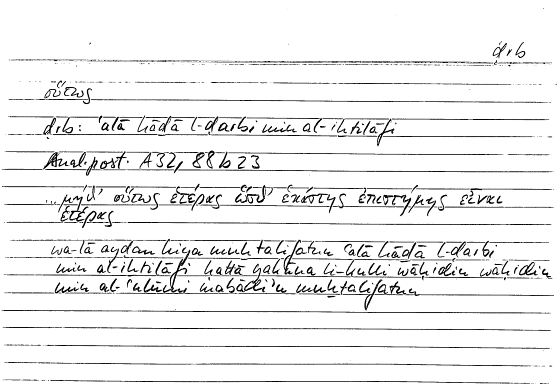 ḍrb
οὕτως
ḍrb: ʿalā hāḏā l-ḍarbi min al-iḫtilāfi
Anal. post. A32, 88 b 23
...μήθ' οὕτως ἑτέρας ὥσθ' ἑκάστης ἐπιστήμης εἶναι
ἑτέρας
wa-lā ayḍan hiya muḫtalifatun ʿalā hāḏā l-ḍarbi
min al-iḫtilāfi ḥattā yakūna li-kulli wāḥidin wāḥidin
min al-ʿulūmi mabādiʾu muḫtalifatun